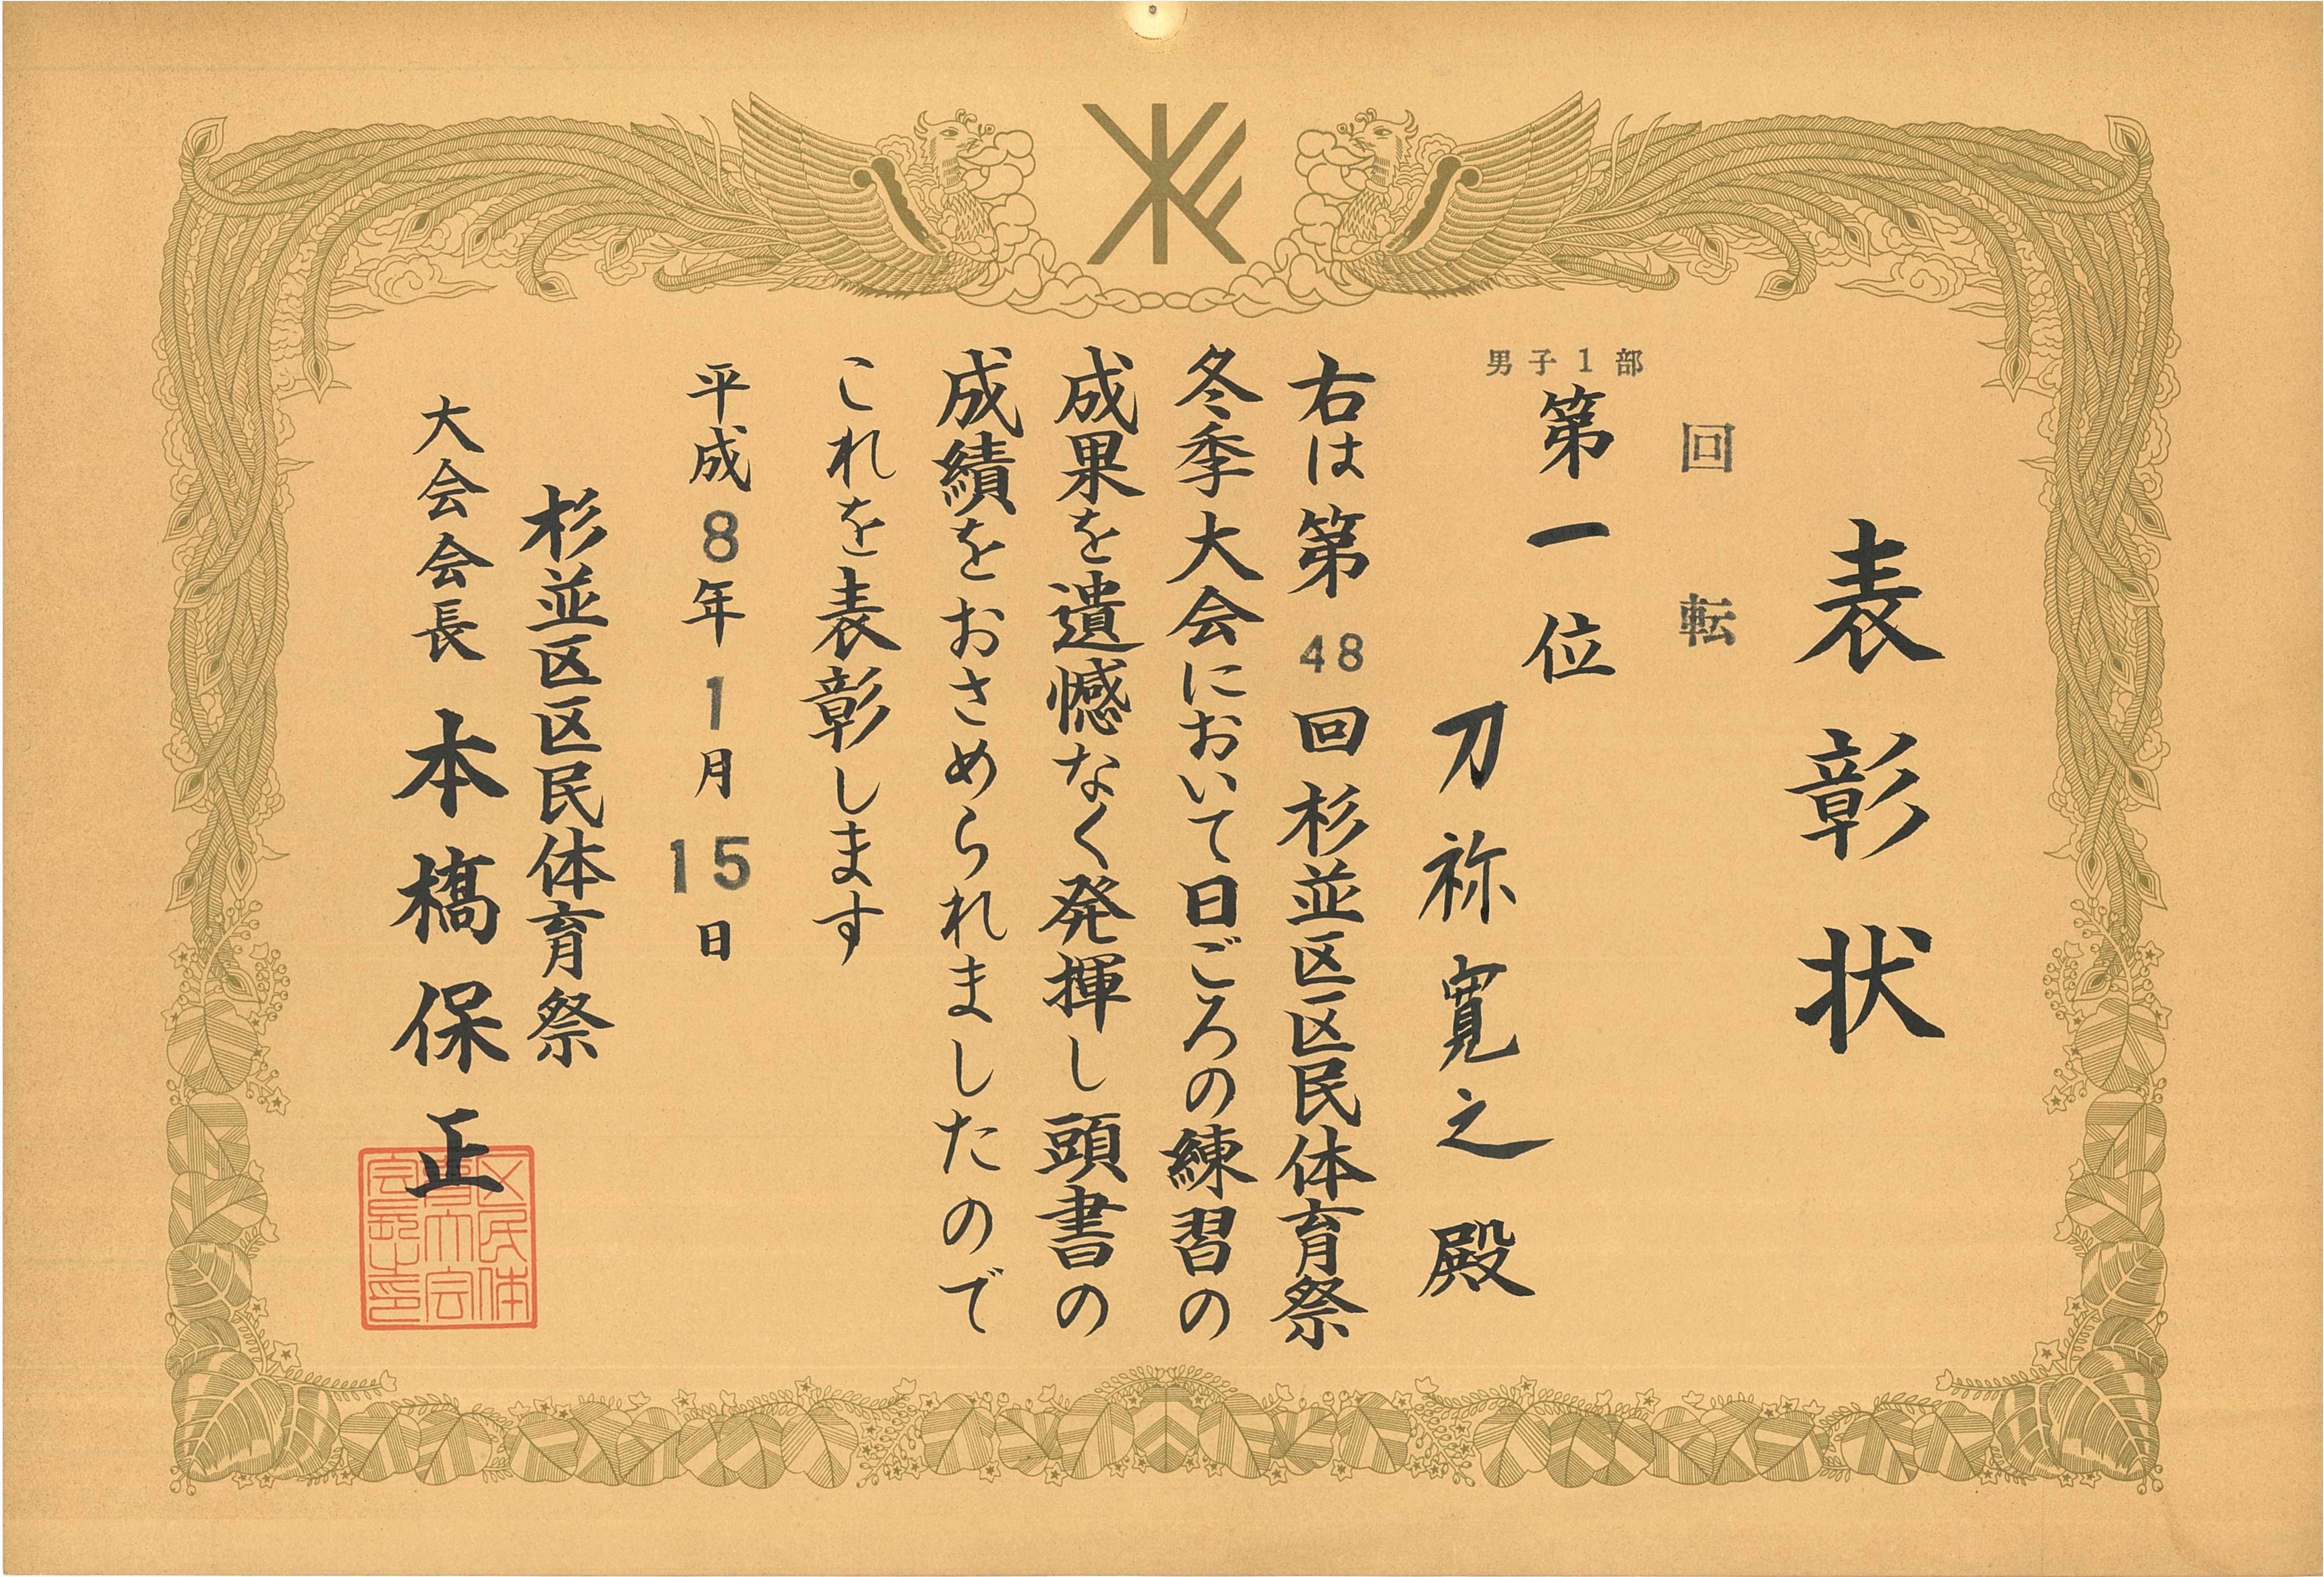 表彰状
回転
男子1部
第一位
刀祢寛之殿
右は第48回杉並区区民体育祭
冬季大会において日ごろの練習の
成果を遺憾なく発揮し頭書の
成績をおさめられましたので
これを表彰します
平成8年1月15日
杉並区区民体育祭
大会会長 本橋保正